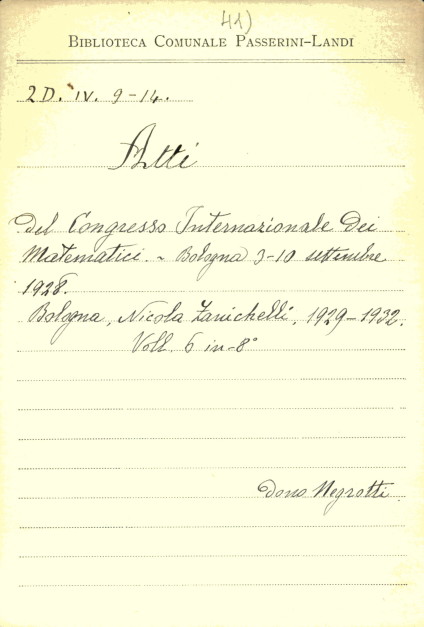 41)
BIBLIOTECA COMUNALE PASSERINI-LANDI
2D. IV. 9-14.
Atti
del Congresso Internazionale dei
Matematici. - Bologna 3-10 settembre
1928.
Bologna, Nicola Zanichelli, 1929-1932.
Voll. 6 in-8°
Dono Negrotti.